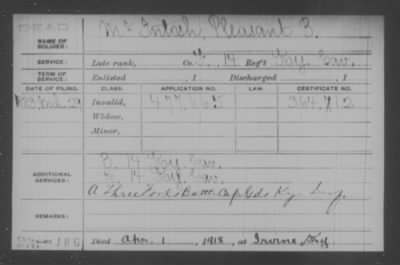 DEAD
NAME OF SOLDIER: McIntosh, Pleasant B.
SERVICE: Late rank, Co. 14 Reg't Ky. Cav.
TERM OF SERVICE: Enlisted , 1 Discharged , 1
DATE OF FILING. CLASS. APPLICATION NO. LAW. CERTIFICATE NO.
Invalid, 364,712
Widow,
Minor,
ADDITIONAL SERVICES: B. 14 Ky. Cav.
14 Ky. Cav.
A. Three Forks Batt. Cap Gds Ky Inf.
REMARKS:
Died Apr. 1, 1918, at Irvine, Ky